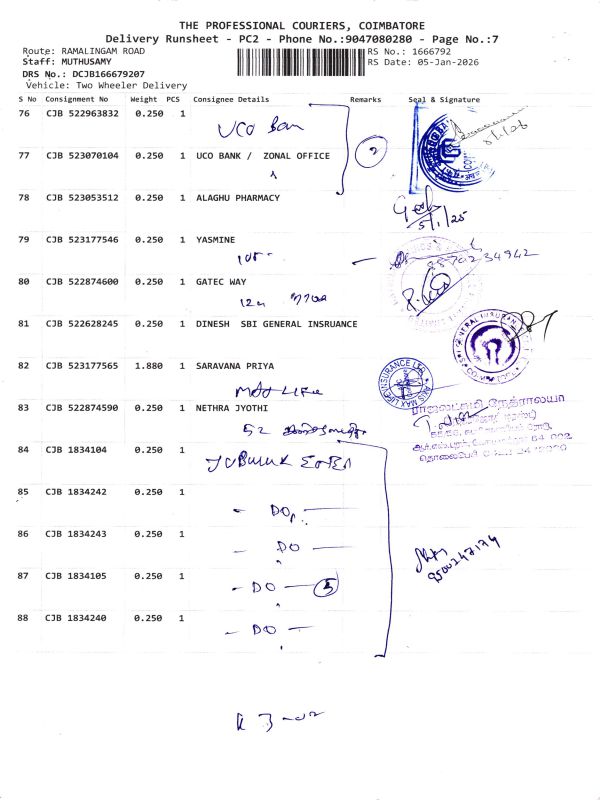 THE PROFESSIONAL COURIERS, COIMBATORE
Delivery Runsheet - PC2 - Phone No.:9047080280 - Page No.:7
Route: RAMALINGAM ROAD
RS No.: 1666792
Staff: MUTHUSAMY
RS Date: 05-Jan-2026
DRS No.: DCJB166679207
Vehicle: Two Wheeler Delivery
S No Consignment No Weight PCS Consignee Details Remarks Seal & Signature
76 CJB 522963832 0.250 1
UCO Ban
77 CJB 523070104 0.250 1 UCO BANK / ZONAL OFFICE
2
78 CJB 523053512 0.250 1 ALAGHU PHARMACY
5/1/25
79 CJB 523177546 0.250 1 YASMINE
80 CJB 522874600 0.250 1 GATEC WAY
81 CJB 522628245 0.250 1 DINESH SBI GENERAL INSRUANCE
82 CJB 523177565 1.880 1 SARAVANA PRIYA
MAX LIFE
83 CJB 522874590 0.250 1 NETHRA JYOTHI
52
84 CJB 1834104 0.250 1
85 CJB 1834242 0.250 1
- DO
86 CJB 1834243 0.250 1
- DO -
87 CJB 1834105 0.250 1
- DO - 5
88 CJB 1834240 0.250 1
- DO -